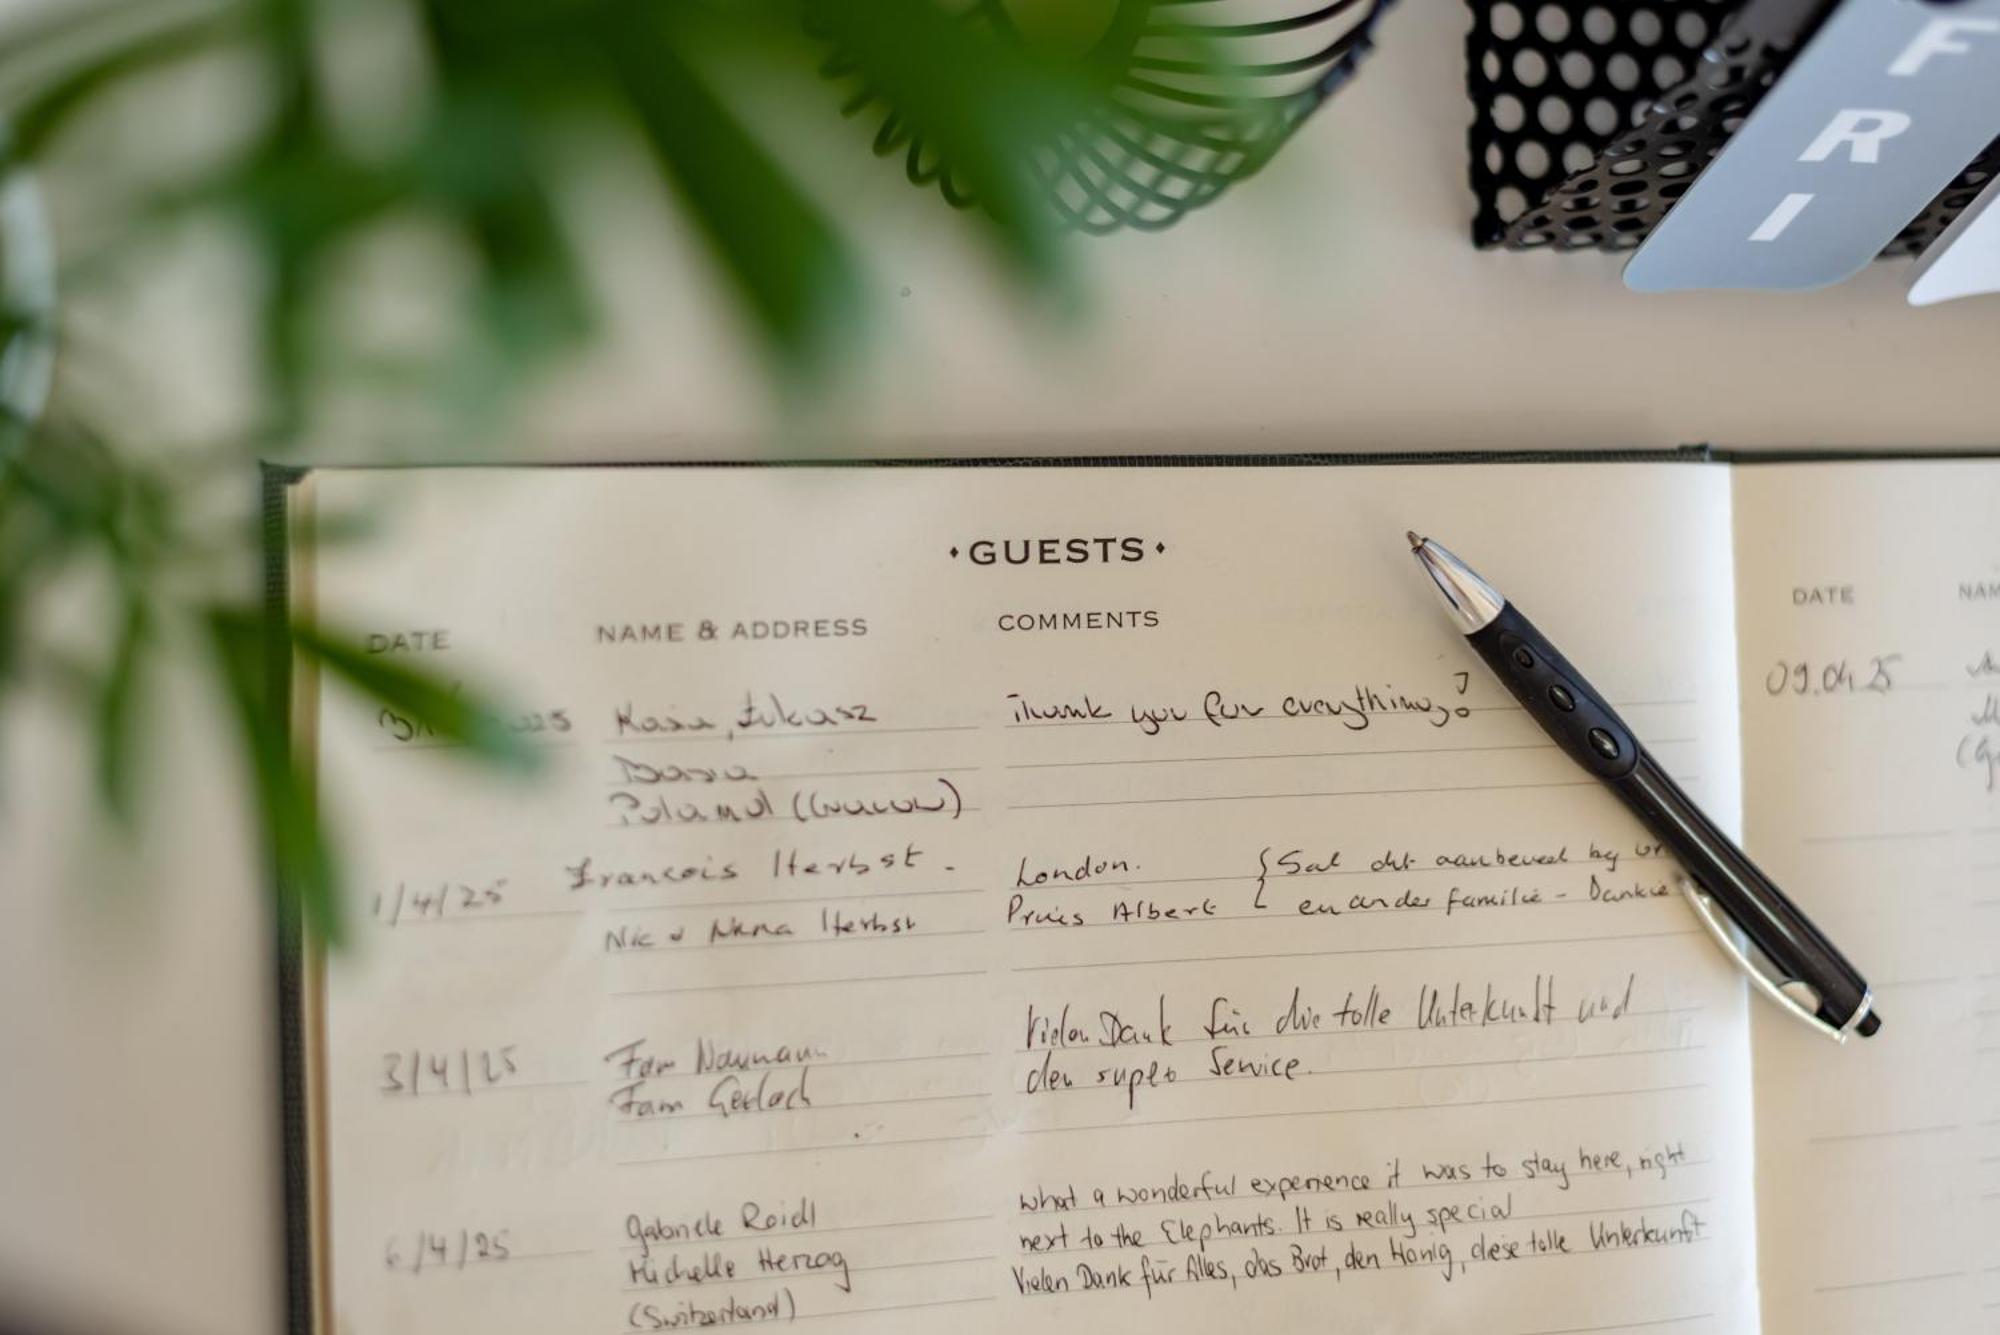 F
R
I
GUESTS
DATE
NAME & ADDRESS
COMMENTS
Kasia, Łukasz
Thank you for everything!
Basia
Poland
1/4/25
Francois Herbst -
London.
Sal dit aanbeveel by
Nic & Herbst
Albert
en ander familie - Dankie
3/4/25
Fam Naumann
Fam Gerlach
Vielen Dank für die tolle Unterkunft und
den super Service.
6/4/25
Gabriele Roidl
Michelle Herzog
(Switzerland)
What a wonderful experience it was to stay here, right
next to the Elephants. It is really special
Vielen Dank für Alles, das Brot, den Honig, diese tolle Unterkunft
DATE
09.04.25